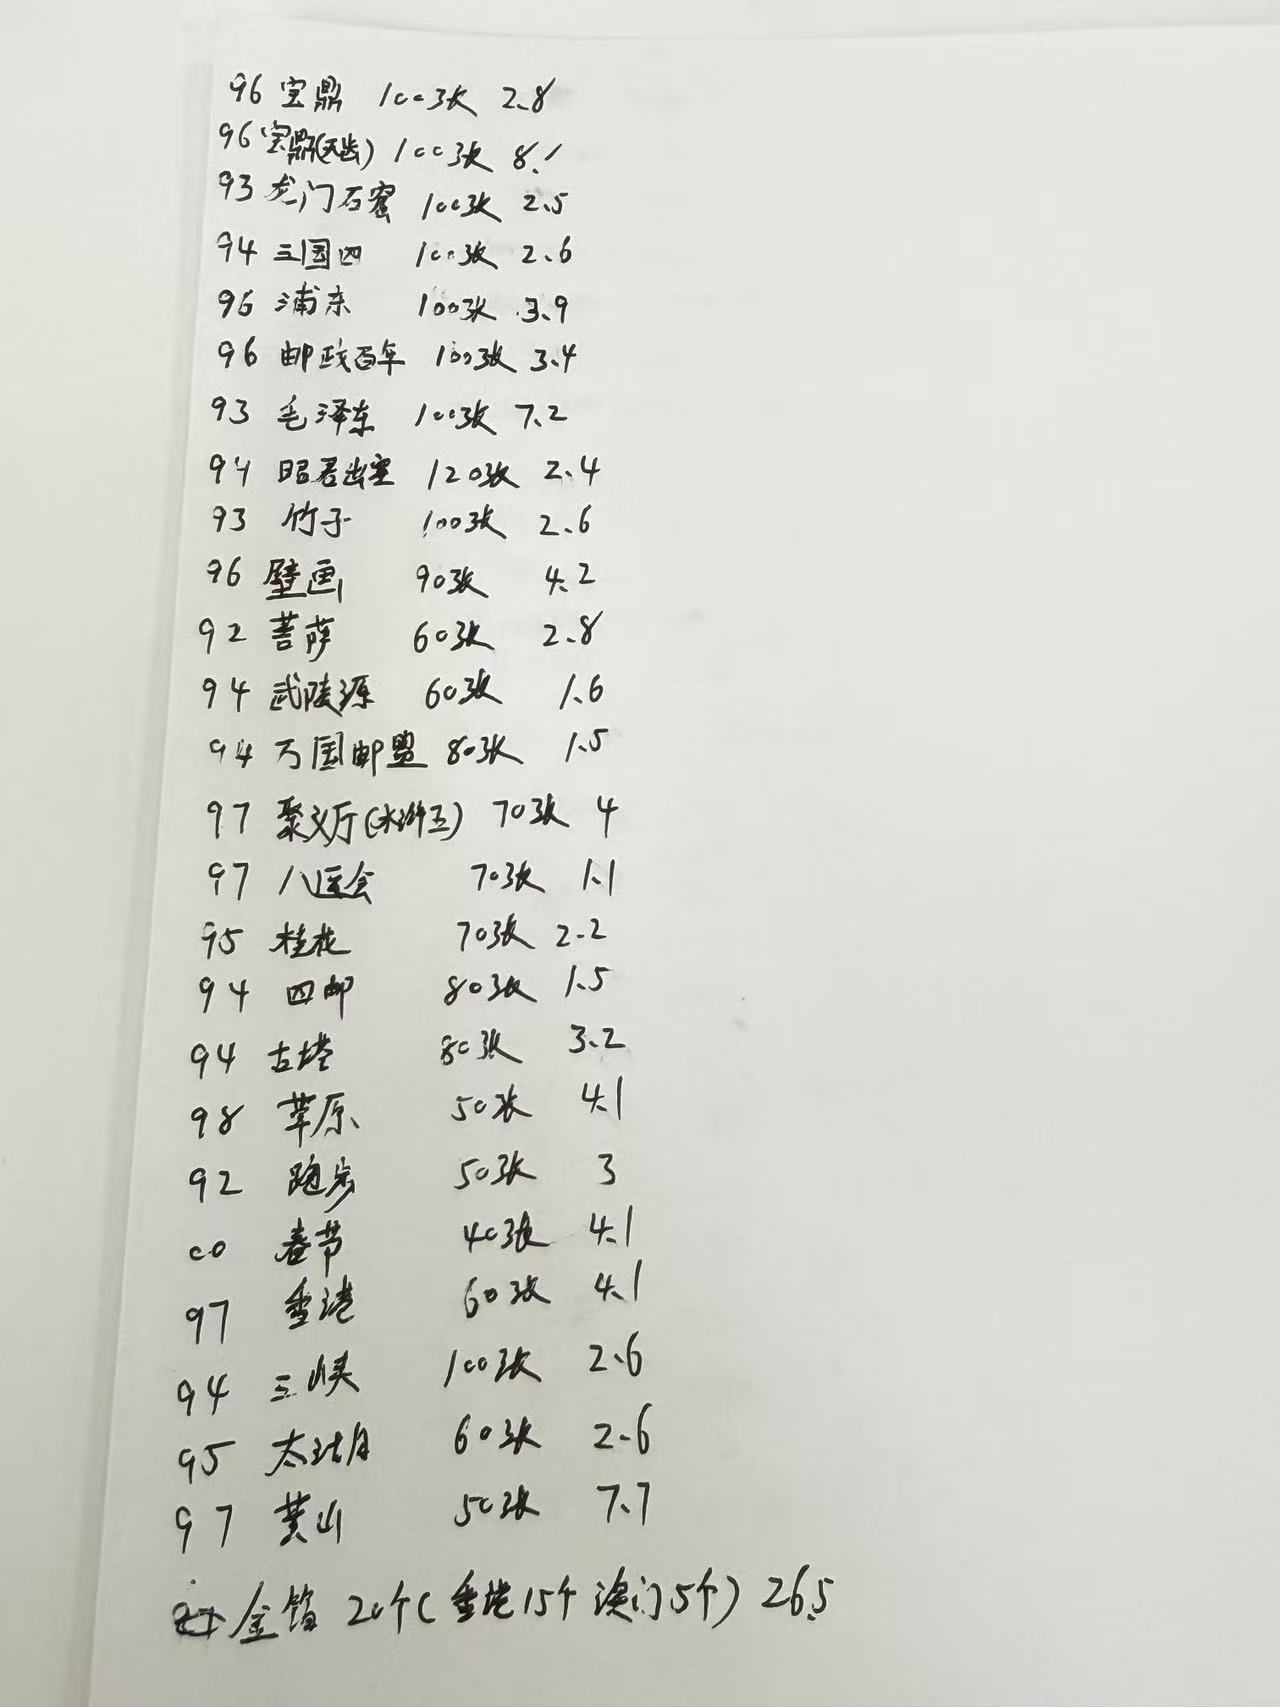 96 宝鼎 100张 2.8
96 宝鼎(无齿) 100张 8.1
93 龙门石窟 100张 2.5
94 三国四 100张 2.6
96 浦东 100张 3.9
96 邮政百年 100张 3.4
93 毛泽东 100张 7.2
94 昭君出塞 120张 2.4
93 竹子 100张 2.6
96 壁画 90张 4.2
92 菩萨 60张 2.8
94 武陵源 60张 1.6
94 万国邮盟 80张 1.5
97 聚义厅(水浒五) 70张 4
97 八运会 70张 1.1
95 桂花 70张 2.2
94 四邮 80张 1.5
94 古塔 80张 3.2
98 草原 50张 4.1
92 跑步 50张 3
00 春节 40张 4.1
97 香港 60张 4.1
94 三峡 100张 2.6
95 太湖 60张 2.6
97 黄山 50张 7.7
金箔 20个(香港15个 澳门5个) 26.5